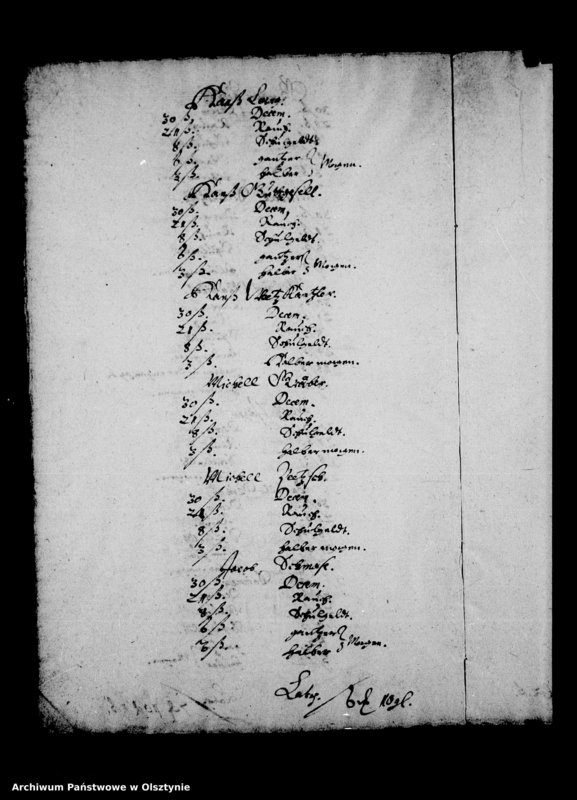 Hanß
30 ß. Decem.
21 ß. Rauch.
8 ß. Schulgeldt.
6 ß. gantzer
3 ß. halber } Morgen.
Hanß
30 ß. Decem.
21 ß. Rauch.
8 ß. Schulgeldt.
6 ß. gantzer
3 ß. halber } Morgen.
Hanß
30 ß. Decem.
21 ß. Rauch.
8 ß. Schulgeldt.
3 ß. Halber morgen.
Michell
30 ß. Decem.
21 ß. Rauch.
8 ß. Schulgeldt.
3 ß. halber morgen.
Michell
30 ß. Decem.
21 ß. Rauch.
8 ß. Schulgeldt.
3 ß. halber morgen.
Jacob
30 ß. Decem.
21 ß. Rauch.
8 ß. Schulgeldt.
6 ß. gantzer
ß. halber } Morgen.
Latus
Archiwum Państwowe w Olsztynie